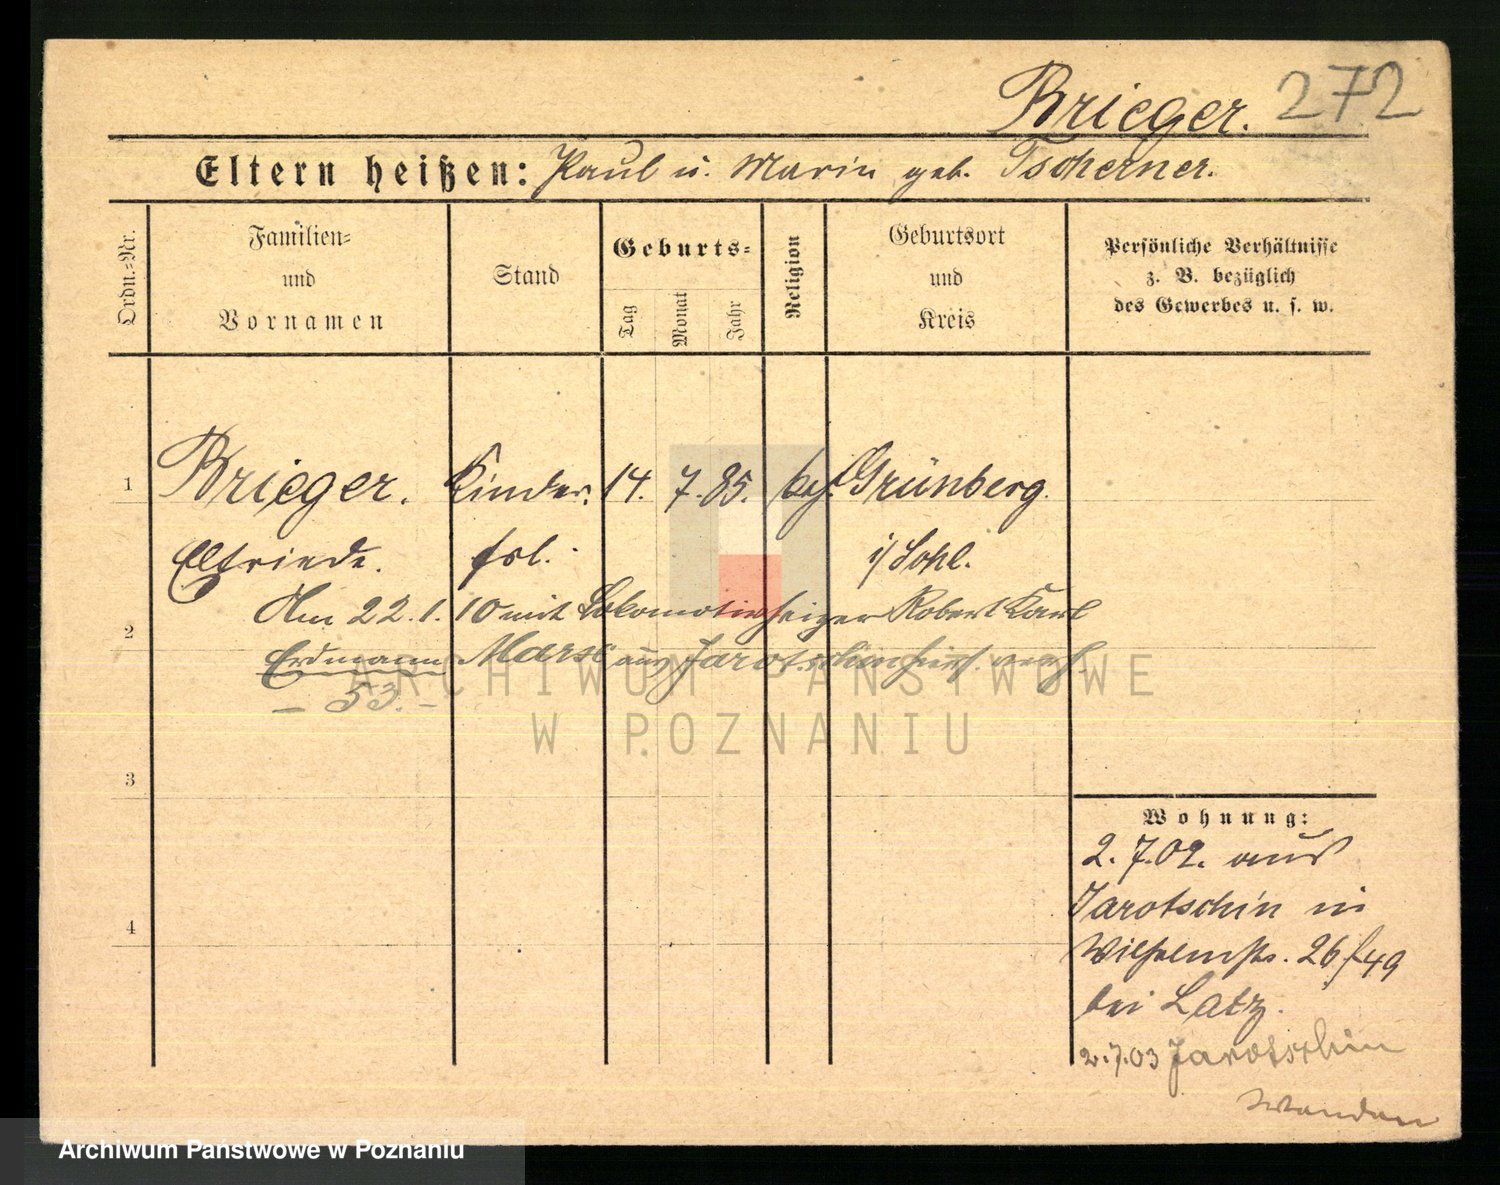 Brieger. 272
Eltern heißen: Paul u. Marie geb. Tscherner.
Ordn.-Nr.
Familien-
und
Vornamen
Stand
Geburts-
Tag
Monat
Jahr
Religion
Geburtsort
und
Kreis
Persönliche Verhältnisse
z. B. bezüglich
des Gewerbes u. s. w.
1 Brieger. Kinder- 14. 7. 85. Grünberg
Elfriede. frl. i/Schl.
Am 22.1.10 mit Lokomotivheizer Robert Karl
2
Erdmann Marsc aus Jarotschin hier verh.
— 53. —
ARCHIWUM PAŃSTWOWE
W POZNANIU
3
4
Wohnung:
2.7.02. aus
Jarotschin in
Wilhelmstr. 26/49
bei Latz.
2.7.03 Jarotschin
Archiwum Państwowe w Poznaniu